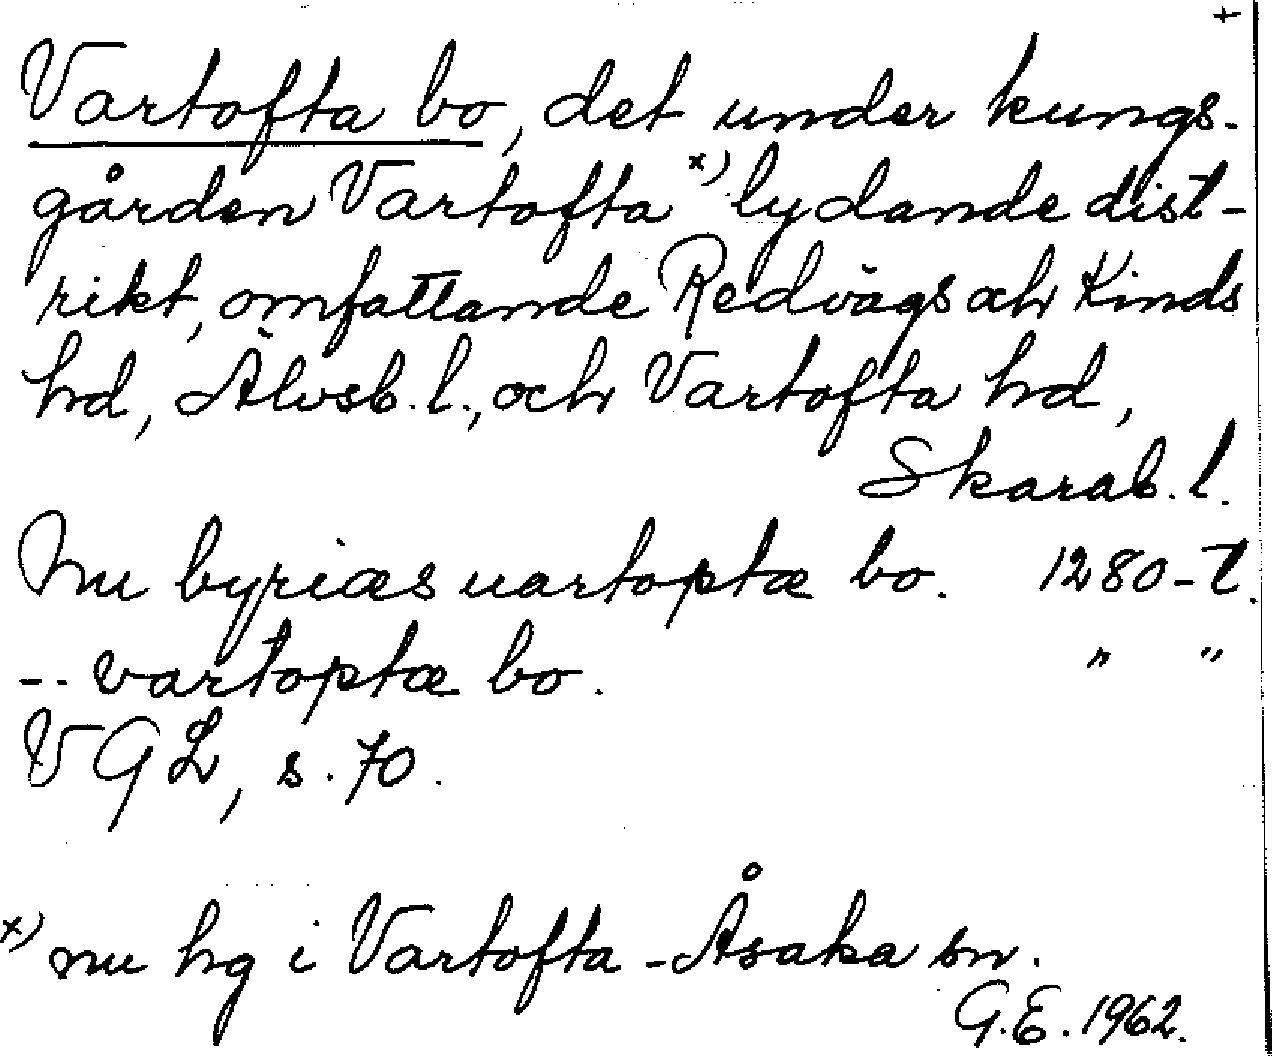 +
Vartofta bo, det under kungs-
gården Vartofta x) lydande dist-
rikt, omfattande Redvägs och Kinds
hd, Älvsb. l., och Vartofta hd,
Skarab. l.
Nu byriæs uartoptæ bo. 1280-t.
-- vartoptæ bo. " "
VGL, s. 70.
x) nu hg i Vartofta-Åsaka sn.
G.E. 1962.